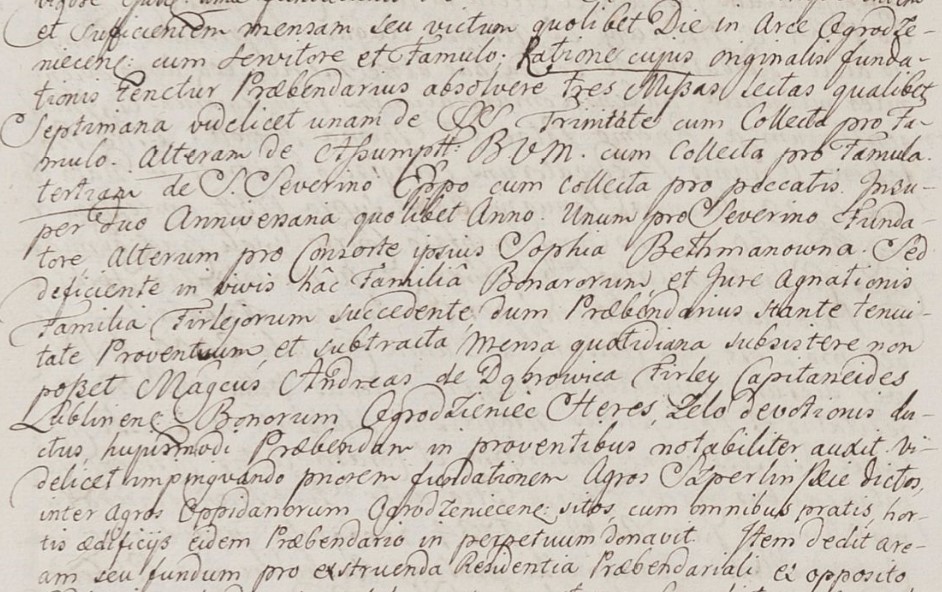 et Sufficientem mensam seu victum quolibet Die in Arce Ogrodze-
niecens: cum Servitore et Famulo; Ratione cujus originalis funda-
tionis tenetur Præbendarius absolvere tres Missas lectas qualibet
Septimana videlicet unam de SS. Trinitate cum Collecta pro Fa-
mulo. Alteram de Assumptt: B.V.M. cum Collecta pro Famula.
tertiam de S. Severino Eppo cum collecta pro peccatis. Insu-
per duo Anniversaria quolibet Anno. Unum pro Severino Funda-
tore Alterum pro Consorte ipsius Sophia Bethmanowna. Sed
deficiente in vivis hâc Familiâ Bonarorum, et Jure Agnationis
Familia Firlejorum succedente, dum Præbendarius stante tenui-
tate Proventuum, et subtracta Mensa quotidiana subsistere non
posset Mageus Andreas de Dąbrowica Firley Capitaneides
Lublinens: Bonorum Ogrodzieniec Heres, Zelo devotionis du-
ctus, hujusmodi Præbendam in proventibus notabiliter auxit. Vi-
delicet impingvando priorem fundationem Agros dictos,
inter Agros Oppidanorum Ogrodzeniecens: sitos, cum omnibus pratis, hor-
tis ædificijs eidem Præbendario in perpetuum donavit. Item dedit are-
am seu fundum pro exstruenda Residentia Præbendariali ex opposito